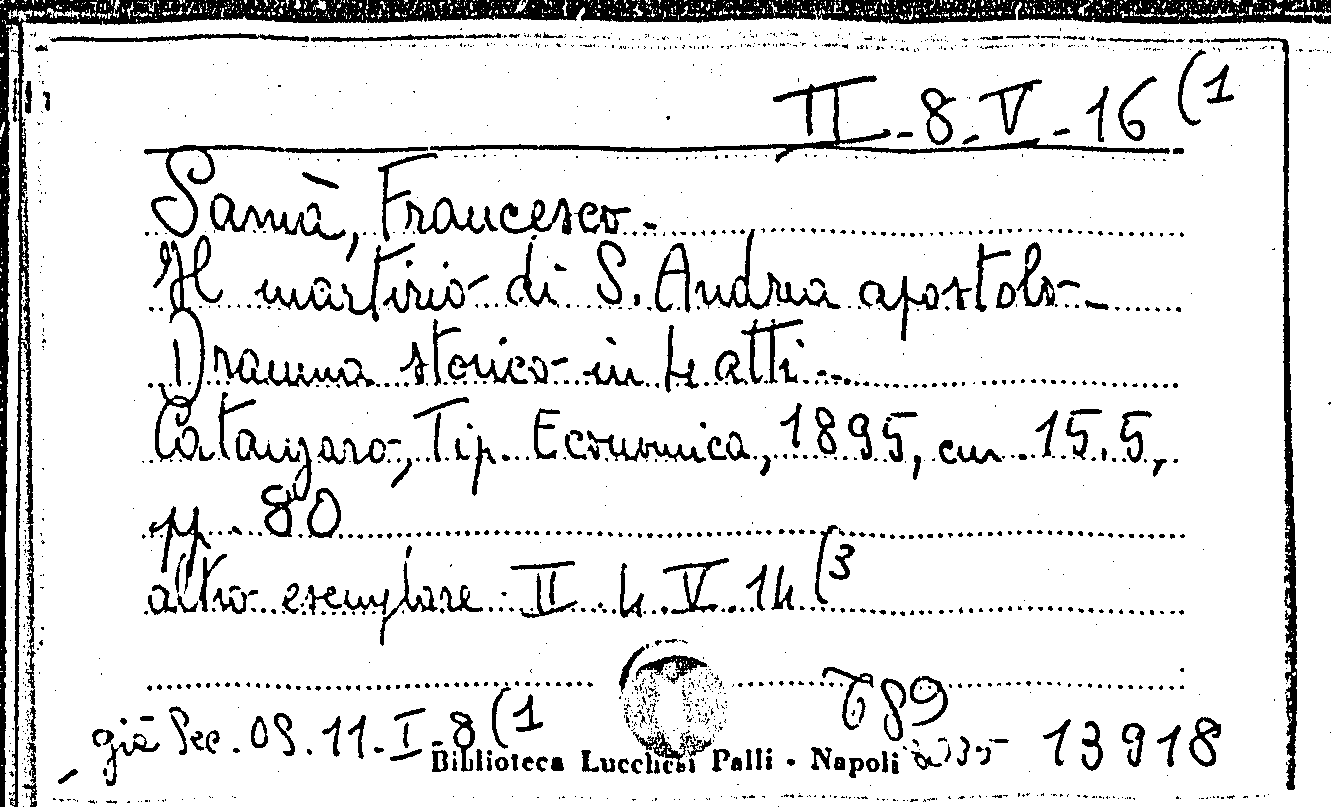 II-8-V-16 (1
Samà, Francesco.
Il martirio di S. Andrea apostolo -
Dramma storico in 4 atti -
Catanzaro, Tip. Economica, 1895, cm. 15.5,
pp. 80
altro esemplare II. 4. V. 14 (3
689
già Sec. OS. 11-I-8 (1
13918
Biblioteca Lucchesi Palli - Napoli